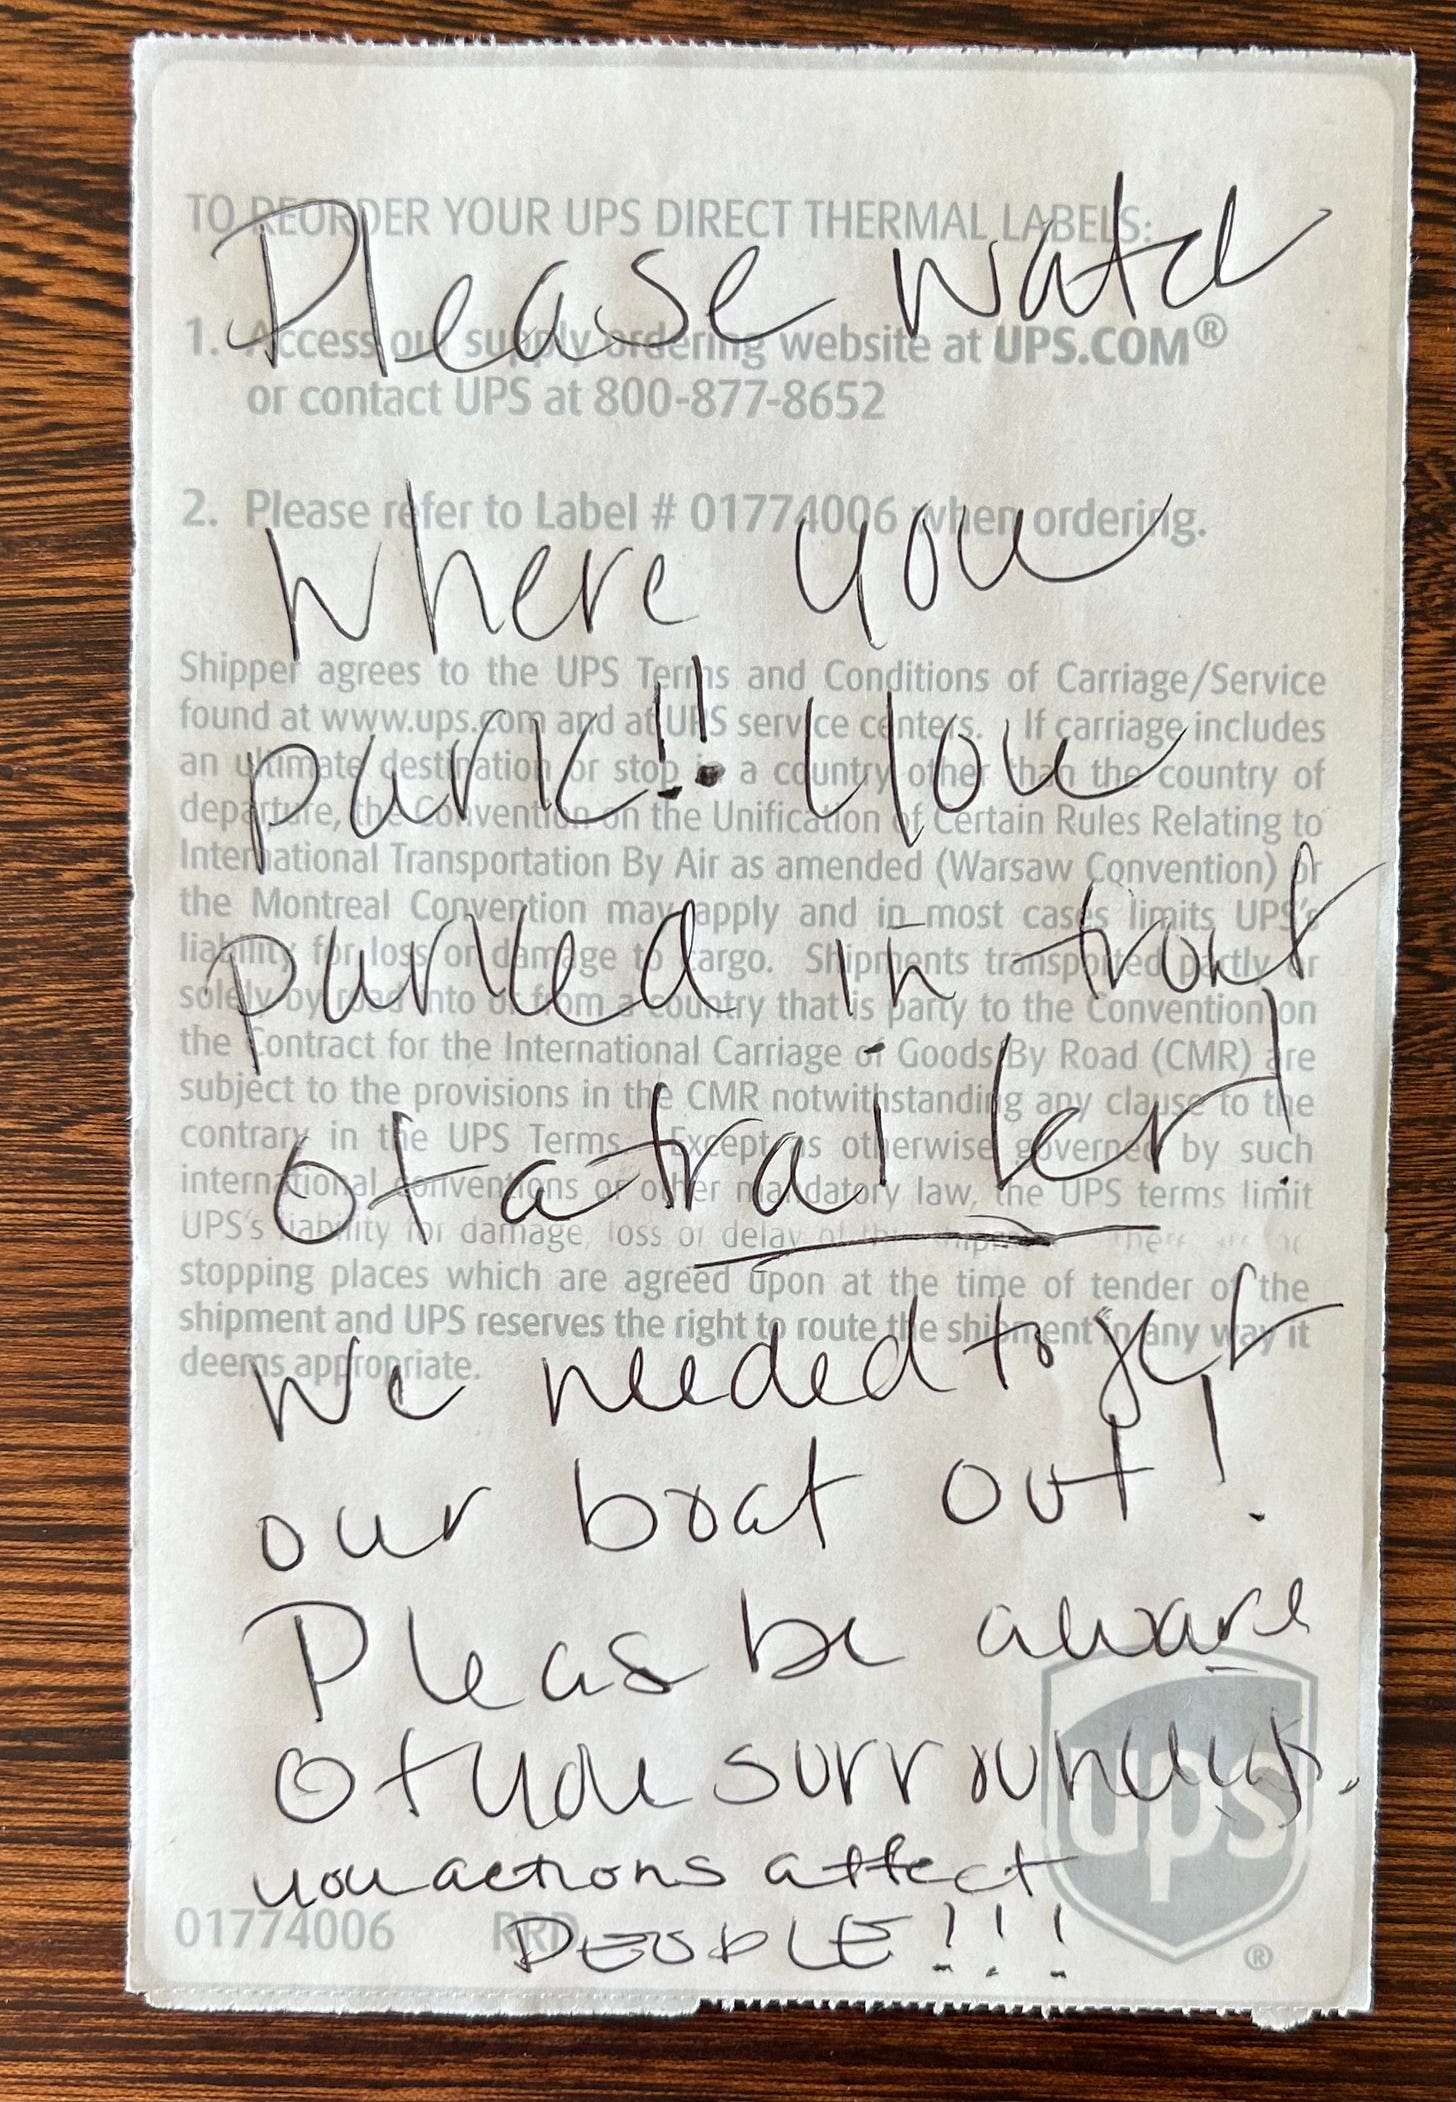 TO REORDER YOUR UPS DIRECT THERMAL LABELS:
Please watch
1. Access our supply ordering website at UPS.COM®
or contact UPS at 800-877-8652
2. Please refer to Label # 01774006 when ordering.
where you
Shipper agrees to the UPS Terms and Conditions of Carriage/Service
found at www.ups.com and at UPS service centers. If carriage includes
park!! You
an ultimate destination or stop in a country other than the country of
departure, the Convention on the Unification of Certain Rules Relating to
International Transportation By Air as amended (Warsaw Convention) or
the Montreal Convention may apply and in most cases limits UPS's
parked in front
liability for loss or damage to cargo. Shipments transported partly or
solely by road into or from a country that is party to the Convention on
the Contract for the International Carriage of Goods By Road (CMR) are
subject to the provisions in the CMR notwithstanding any clause to the
contrary in the UPS Terms. Except as otherwise governed by such
of a trailer!
international conventions or other mandatory law, the UPS terms limit
UPS's liability for damage, loss or delay of this shipment. There are no
stopping places which are agreed upon at the time of tender of the
shipment and UPS reserves the right to route the shipment in any way it
deems appropriate.
We needed to get
our boat out!
Pleas be aware
of you surroundings.
you actions affect
01774006 RRD
PEOPLE!!!
ups
®